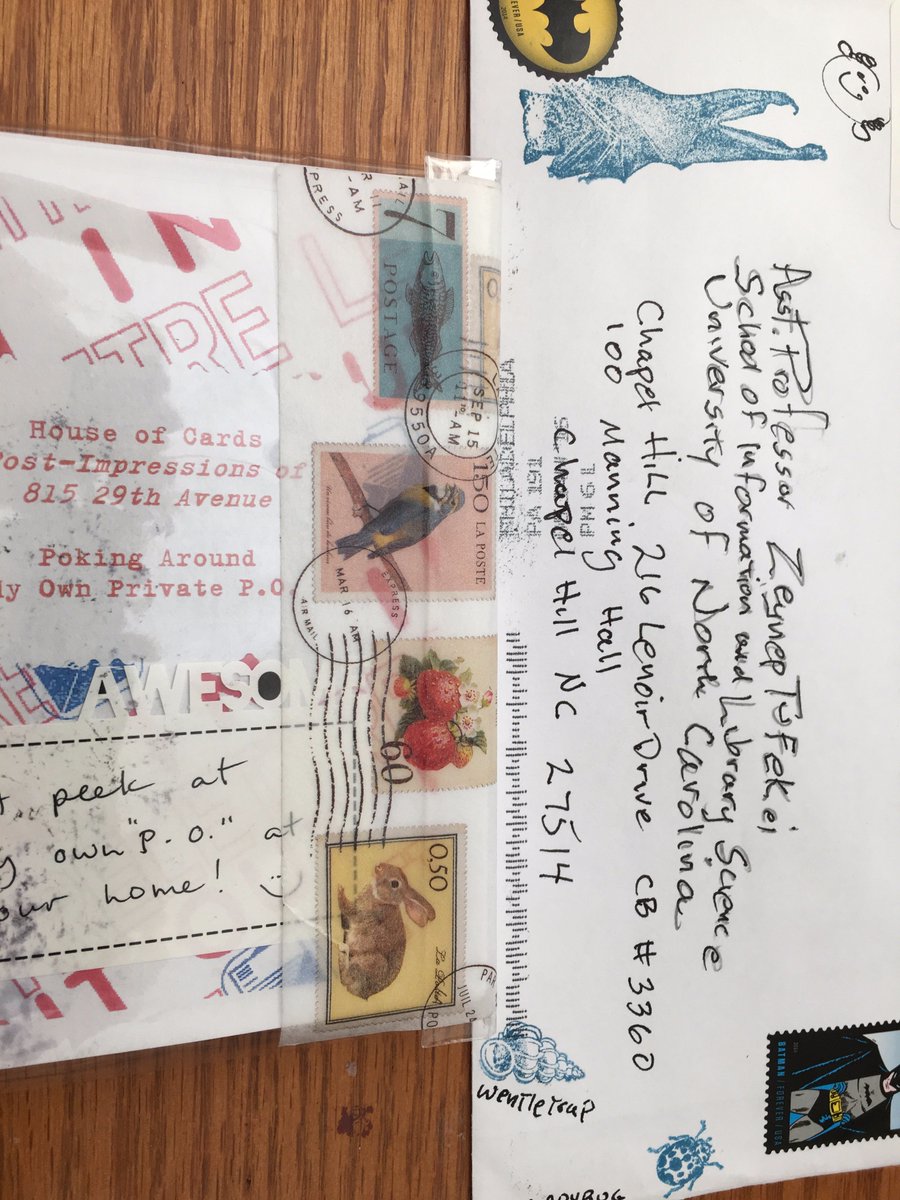 House of Cards
Post-Impressions of
815 29th Avenue
Poking Around
My Own Private P.O.
AWESOM
peek at
own "P.O." at
our home!
PRESS
AM
7
POSTAGE
SEP 15
11 AM
9550A
150 LA POSTE
EXPRESS
MAR 16 AM
AIR MAIL
60
0,50
JUIL 24
PO
EVER/USA
PHILADELPHIA
PA 191
Asst. Professor Zeynep Tufekci
School of Information and Library Science
University of North Carolina
Chapel Hill 216 Lenoir Drive CB # 3360
100 Manning Hall
Chapel Hill NC 27514
BATMAN / FOREVER / USA
Wentletrap
LADYBUG